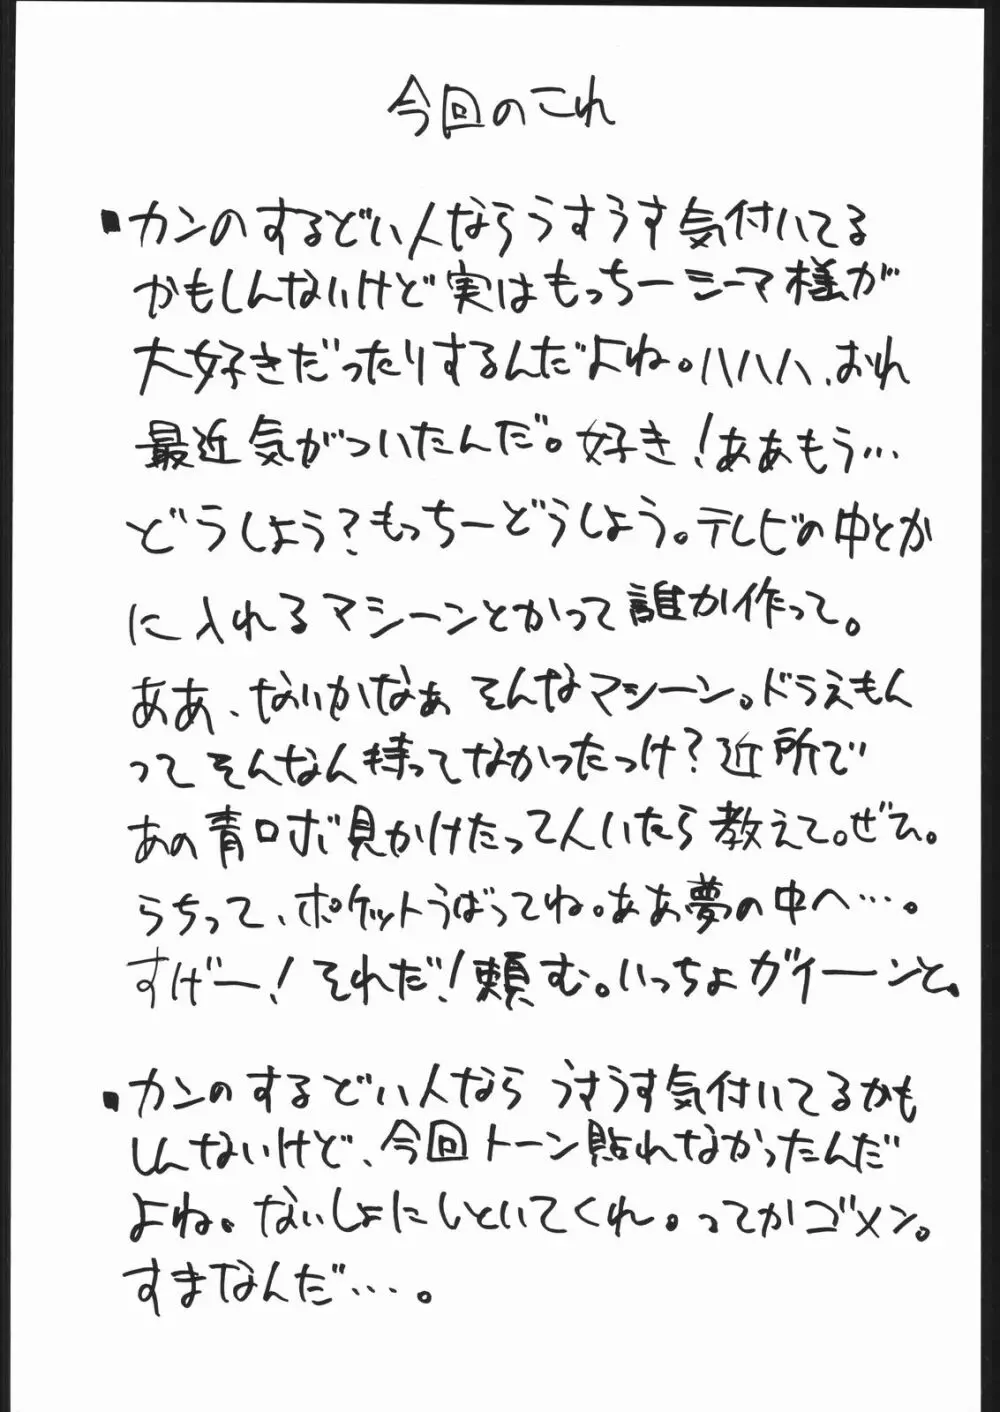 今回のこれ
■カンのするどい人ならうすうす気付いてる
かもしんないけど実はもっちーシーマ様が
大好きだったりするんだよね。ハハハ、おれ
最近気がついたんだ。好き！ああもう…
どうしよう？もっちーどうしよう。テレビの中とか
に入れるマシーンとかって誰か作って。
ああ、ないかなぁそんなマシーン。ドラえもん
ってそんなん持ってなかったっけ？近所で
あの青ロボ見かけたって人いたら教えて。ぜひ。
らちって、ポケットうばってね。ああ夢の中へ…。
すげー！それだ！頼む。いっちょガイーンと。
■カンのするどい人ならうすうす気付いてるかも
しんないけど、今回トーン貼れなかったんだ
よね。ないしょにしといてくれ。ってかゴメン。
すまなんだ…。